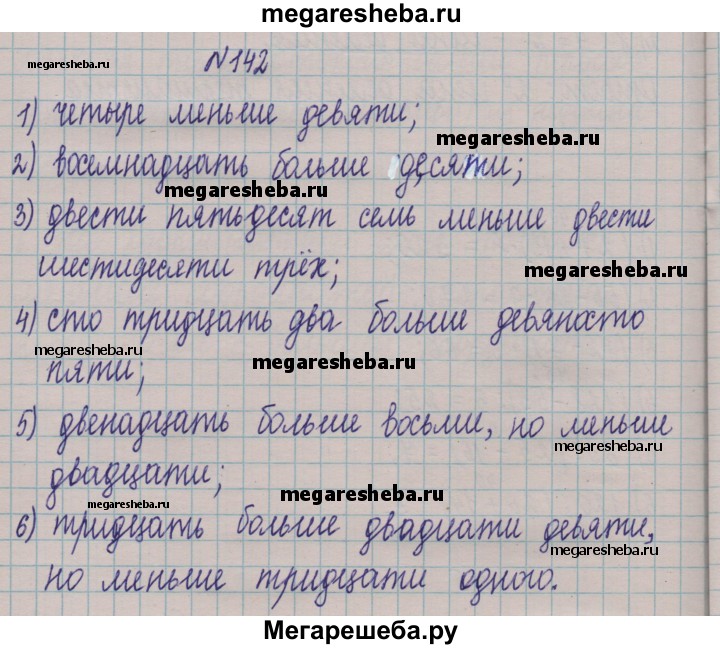 megaresheba.ru
megaresheba.ru
№142
1) четыре меньше девяти;
megaresheba.ru
2) восемнадцать больше десяти;
megaresheba.ru
3) двести пятьдесят семь меньше двести
шестидесяти трёх;
megaresheba.ru
4) сто тридцать два больше девяносто
megaresheba.ru
megaresheba.ru
пяти;
5) двенадцать больше восьми, но меньше
megaresheba.ru
двадцати;
megaresheba.ru
megaresheba.ru
6) тридцать больше двадцати девяти,
megaresheba.ru
но меньше тридцати одного.
Мегарешеба.ру